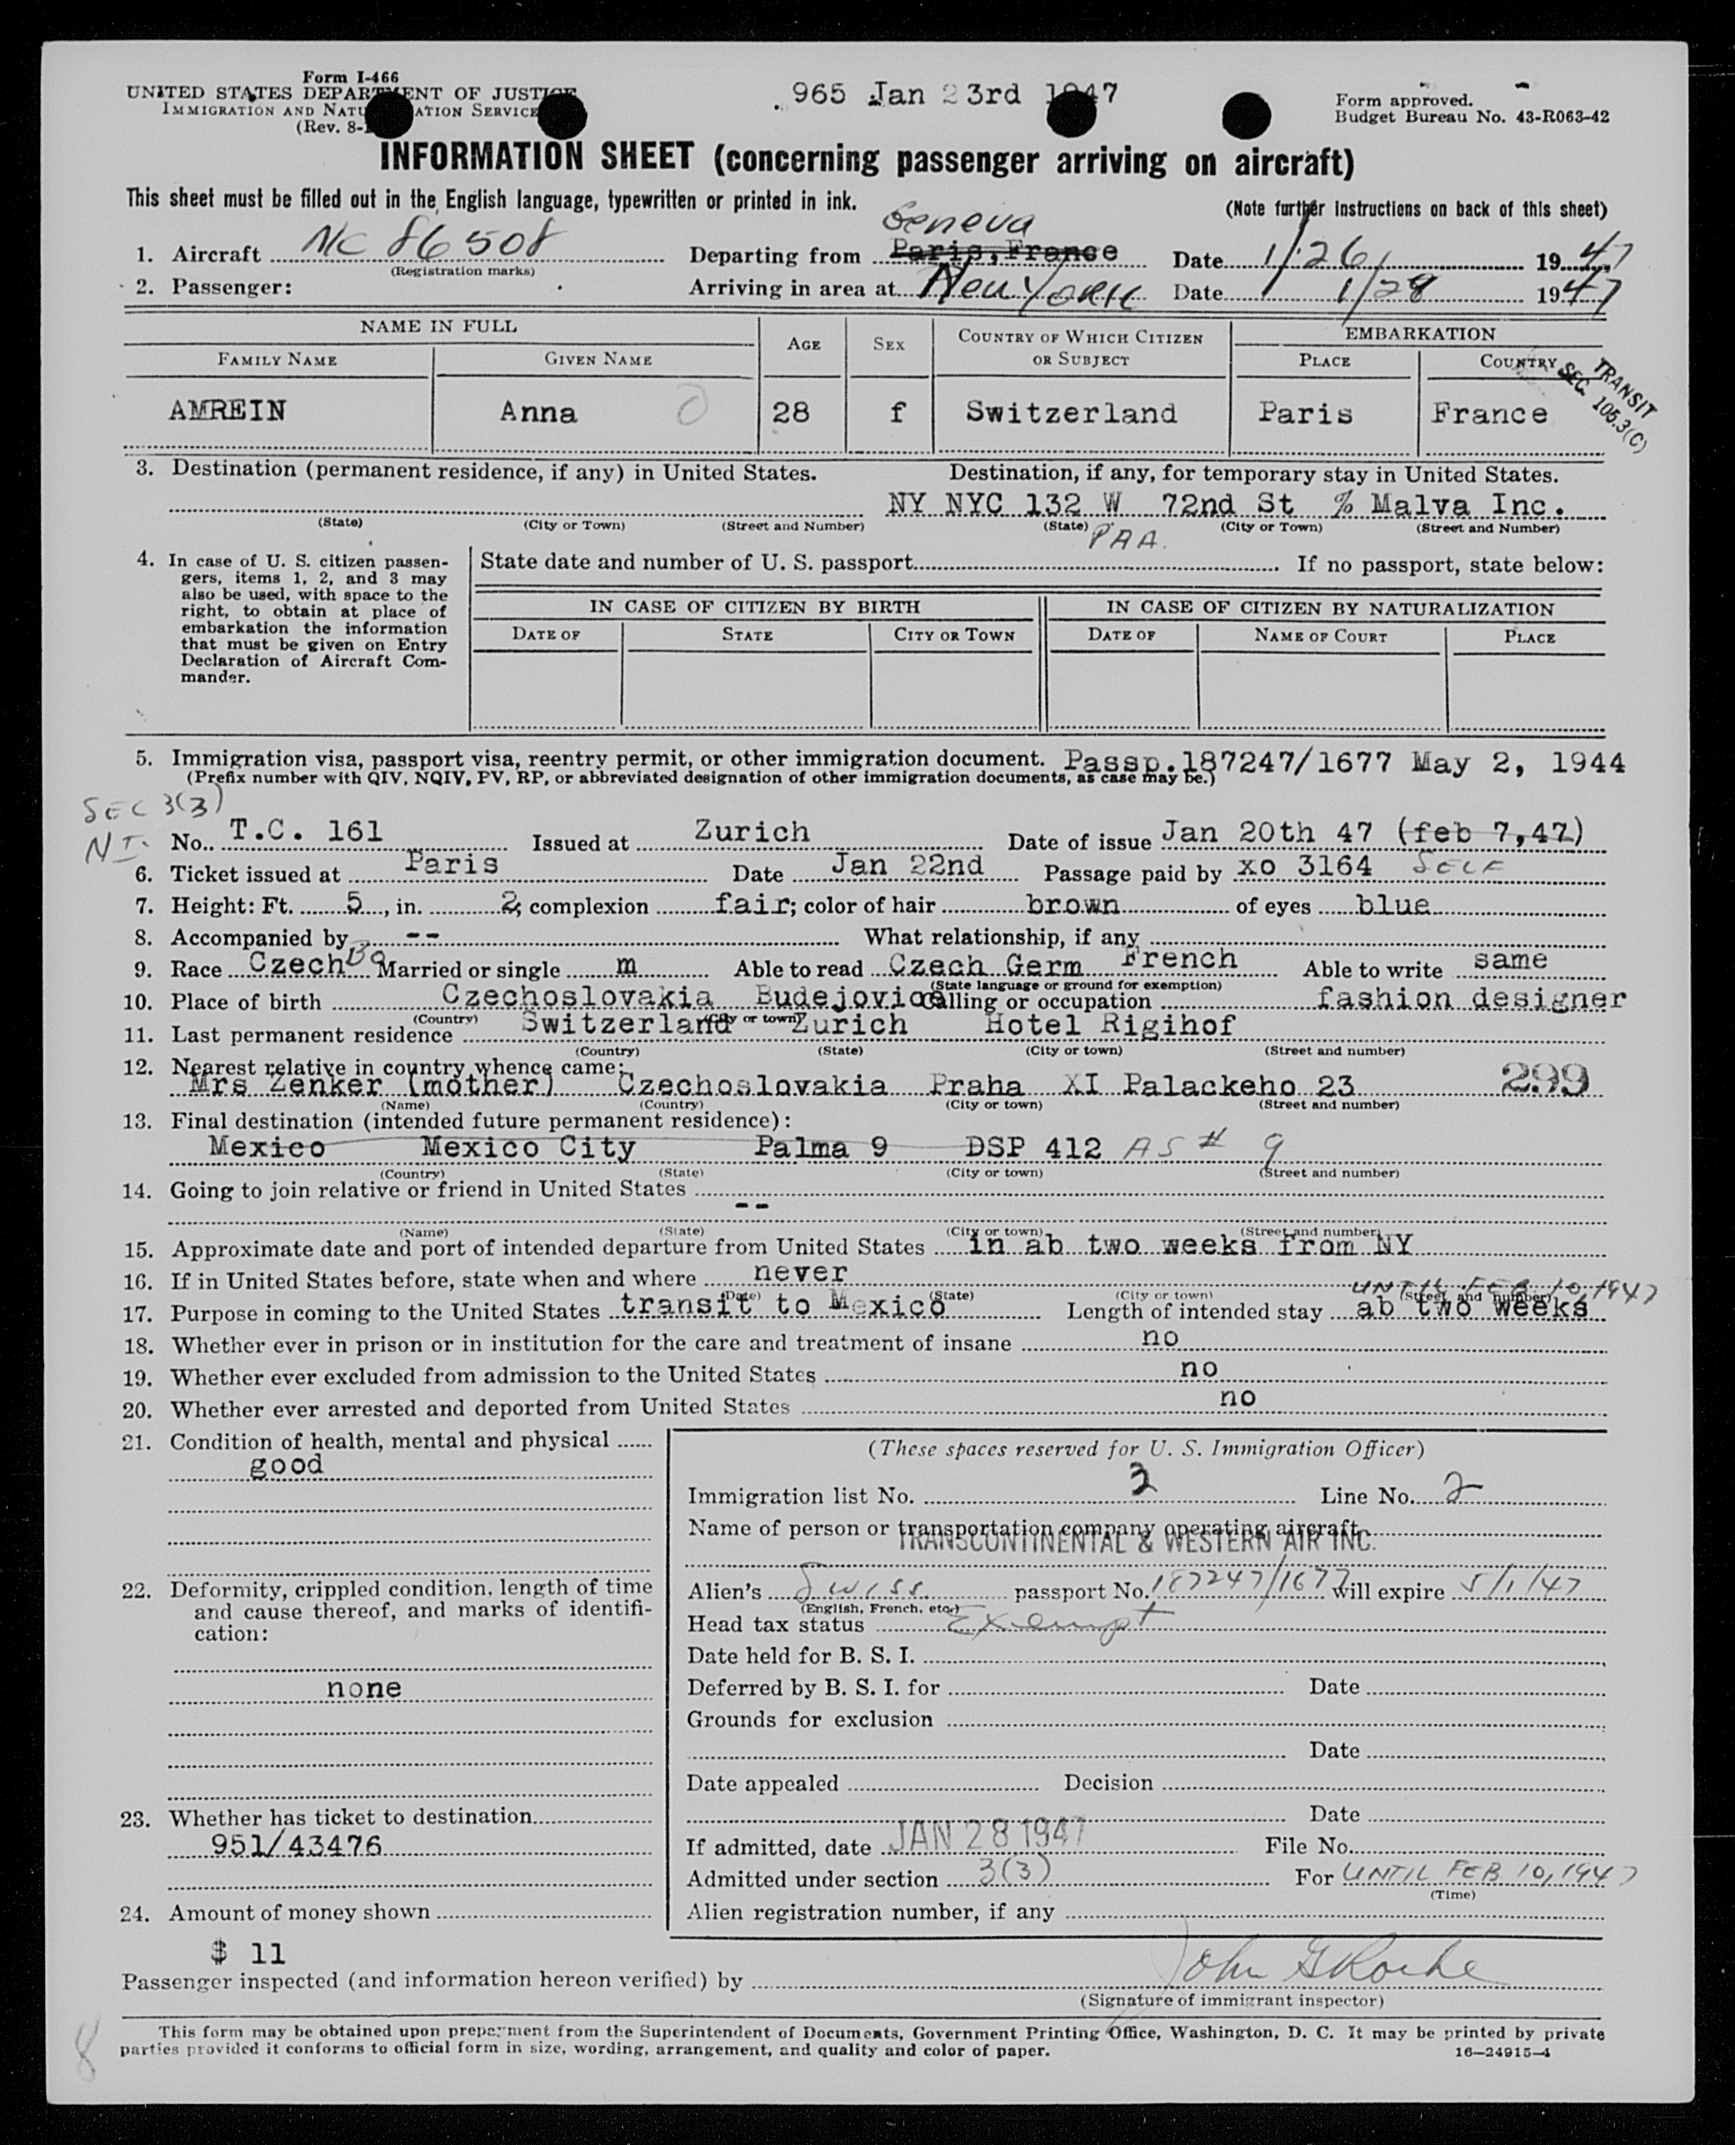 Form I-466
UNITED STATES DEPARTMENT OF JUSTICE
IMMIGRATION AND NATURALIZATION SERVICE
(Rev. 8-
965 Jan 23rd 1947
Form approved.
Budget Bureau No. 43-R063-42
INFORMATION SHEET (concerning passenger arriving on aircraft)
This sheet must be filled out in the English language, typewritten or printed in ink.
(Note further instructions on back of this sheet)
Geneva
1. Aircraft NC 86508 Departing from Paris, France Date 1/26/ 1947
(Registration marks)
2. Passenger: Arriving in area at New York Date 1/28 1947
NAME IN FULL AGE SEX COUNTRY OF WHICH CITIZEN OR SUBJECT EMBARKATION
FAMILY NAME GIVEN NAME PLACE COUNTRY
TRANSIT
SEC. 105.3(C)
AMREIN Anna 28 f Switzerland Paris France
3. Destination (permanent residence, if any) in United States. Destination, if any, for temporary stay in United States.
NY NYC 132 W 72nd St % Malva Inc.
(State) (City or Town) (Street and Number) (State) (City or Town) (Street and Number)
PAA.
4. In case of U. S. citizen passen-
gers, items 1, 2, and 3 may
also be used, with space to the
right, to obtain at place of
embarkation the information
that must be given on Entry
Declaration of Aircraft Com-
mander.
State date and number of U. S. passport If no passport, state below:
IN CASE OF CITIZEN BY BIRTH IN CASE OF CITIZEN BY NATURALIZATION
DATE OF STATE CITY OR TOWN DATE OF NAME OF COURT PLACE
5. Immigration visa, passport visa, reentry permit, or other immigration document. Passp.187247/1677 May 2, 1944
(Prefix number with QIV, NQIV, PV, RP, or abbreviated designation of other immigration documents, as case may be.)
SEC 3(3)
NI.
No. T.C. 161 Issued at Zurich Date of issue Jan 20th 47 (feb 7,47)
6. Ticket issued at Paris Date Jan 22nd Passage paid by xo 3164 SELF
7. Height: Ft. 5, in. 2; complexion fair; color of hair brown of eyes blue
8. Accompanied by -- What relationship, if any
9. Race Czech Married or single m Able to read Czech Germ French Able to write same
(State language or ground for exemption)
10. Place of birth Czechoslovakia Budejovice Calling or occupation fashion designer
(Country) (City or town)
11. Last permanent residence Switzerland Zurich Hotel Rigihof
(Country) (State) (City or town) (Street and number)
12. Nearest relative in country whence came:
Mrs Zenker (mother) Czechoslovakia Praha XI Palackeho 23 299
(Name) (Country) (City or town) (Street and number)
13. Final destination (intended future permanent residence):
Mexico Mexico City Palma 9 DSP 412 AS # 9
(Country) (State) (City or town) (Street and number)
14. Going to join relative or friend in United States
--
(Name) (State) (City or town) (Street and number)
15. Approximate date and port of intended departure from United States in ab two weeks from NY
16. If in United States before, state when and where never
(Date) (State) (City or town) (Street and number)
UNTIL FEB 10, 1947
17. Purpose in coming to the United States transit to Mexico Length of intended stay ab two weeks
18. Whether ever in prison or in institution for the care and treatment of insane no
19. Whether ever excluded from admission to the United States no
20. Whether ever arrested and deported from United States no
21. Condition of health, mental and physical
good
22. Deformity, crippled condition, length of time
and cause thereof, and marks of identifi-
cation:
none
23. Whether has ticket to destination
951/43476
24. Amount of money shown
$ 11
(These spaces reserved for U. S. Immigration Officer)
Immigration list No. 3 Line No. 2
Name of person or transportation company operating aircraft
TRANSCONTINENTAL & WESTERN AIR INC.
Alien's Swiss passport No. 187247/1677 will expire 5/1/47
(English, French, etc.)
Head tax status Exempt
Date held for B. S. I.
Deferred by B. S. I. for Date
Grounds for exclusion
Date
Date appealed Decision
Date
If admitted, date JAN 28 1947 File No.
Admitted under section 3(3) For UNTIL FEB 10, 1947
(Time)
Alien registration number, if any
Passenger inspected (and information hereon verified) by John G Roche
(Signature of immigrant inspector)
This form may be obtained upon prepayment from the Superintendent of Documents, Government Printing Office, Washington, D. C. It may be printed by private
parties provided it conforms to official form in size, wording, arrangement, and quality and color of paper.
16—24915-4
8